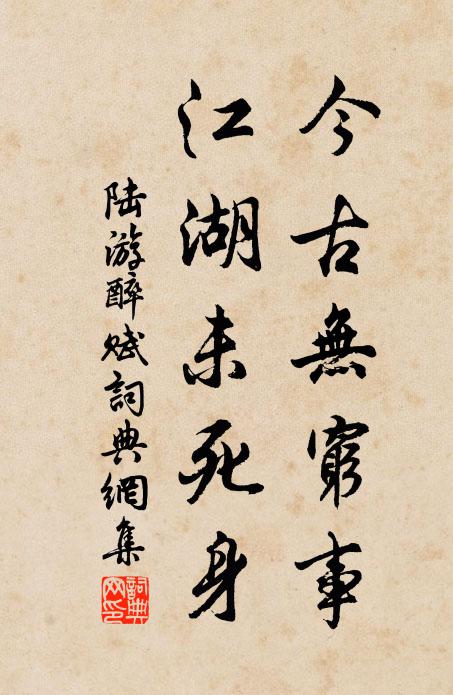 今古無窮事
江湖未死身
陆游醉赋詞典網集
詞典网印